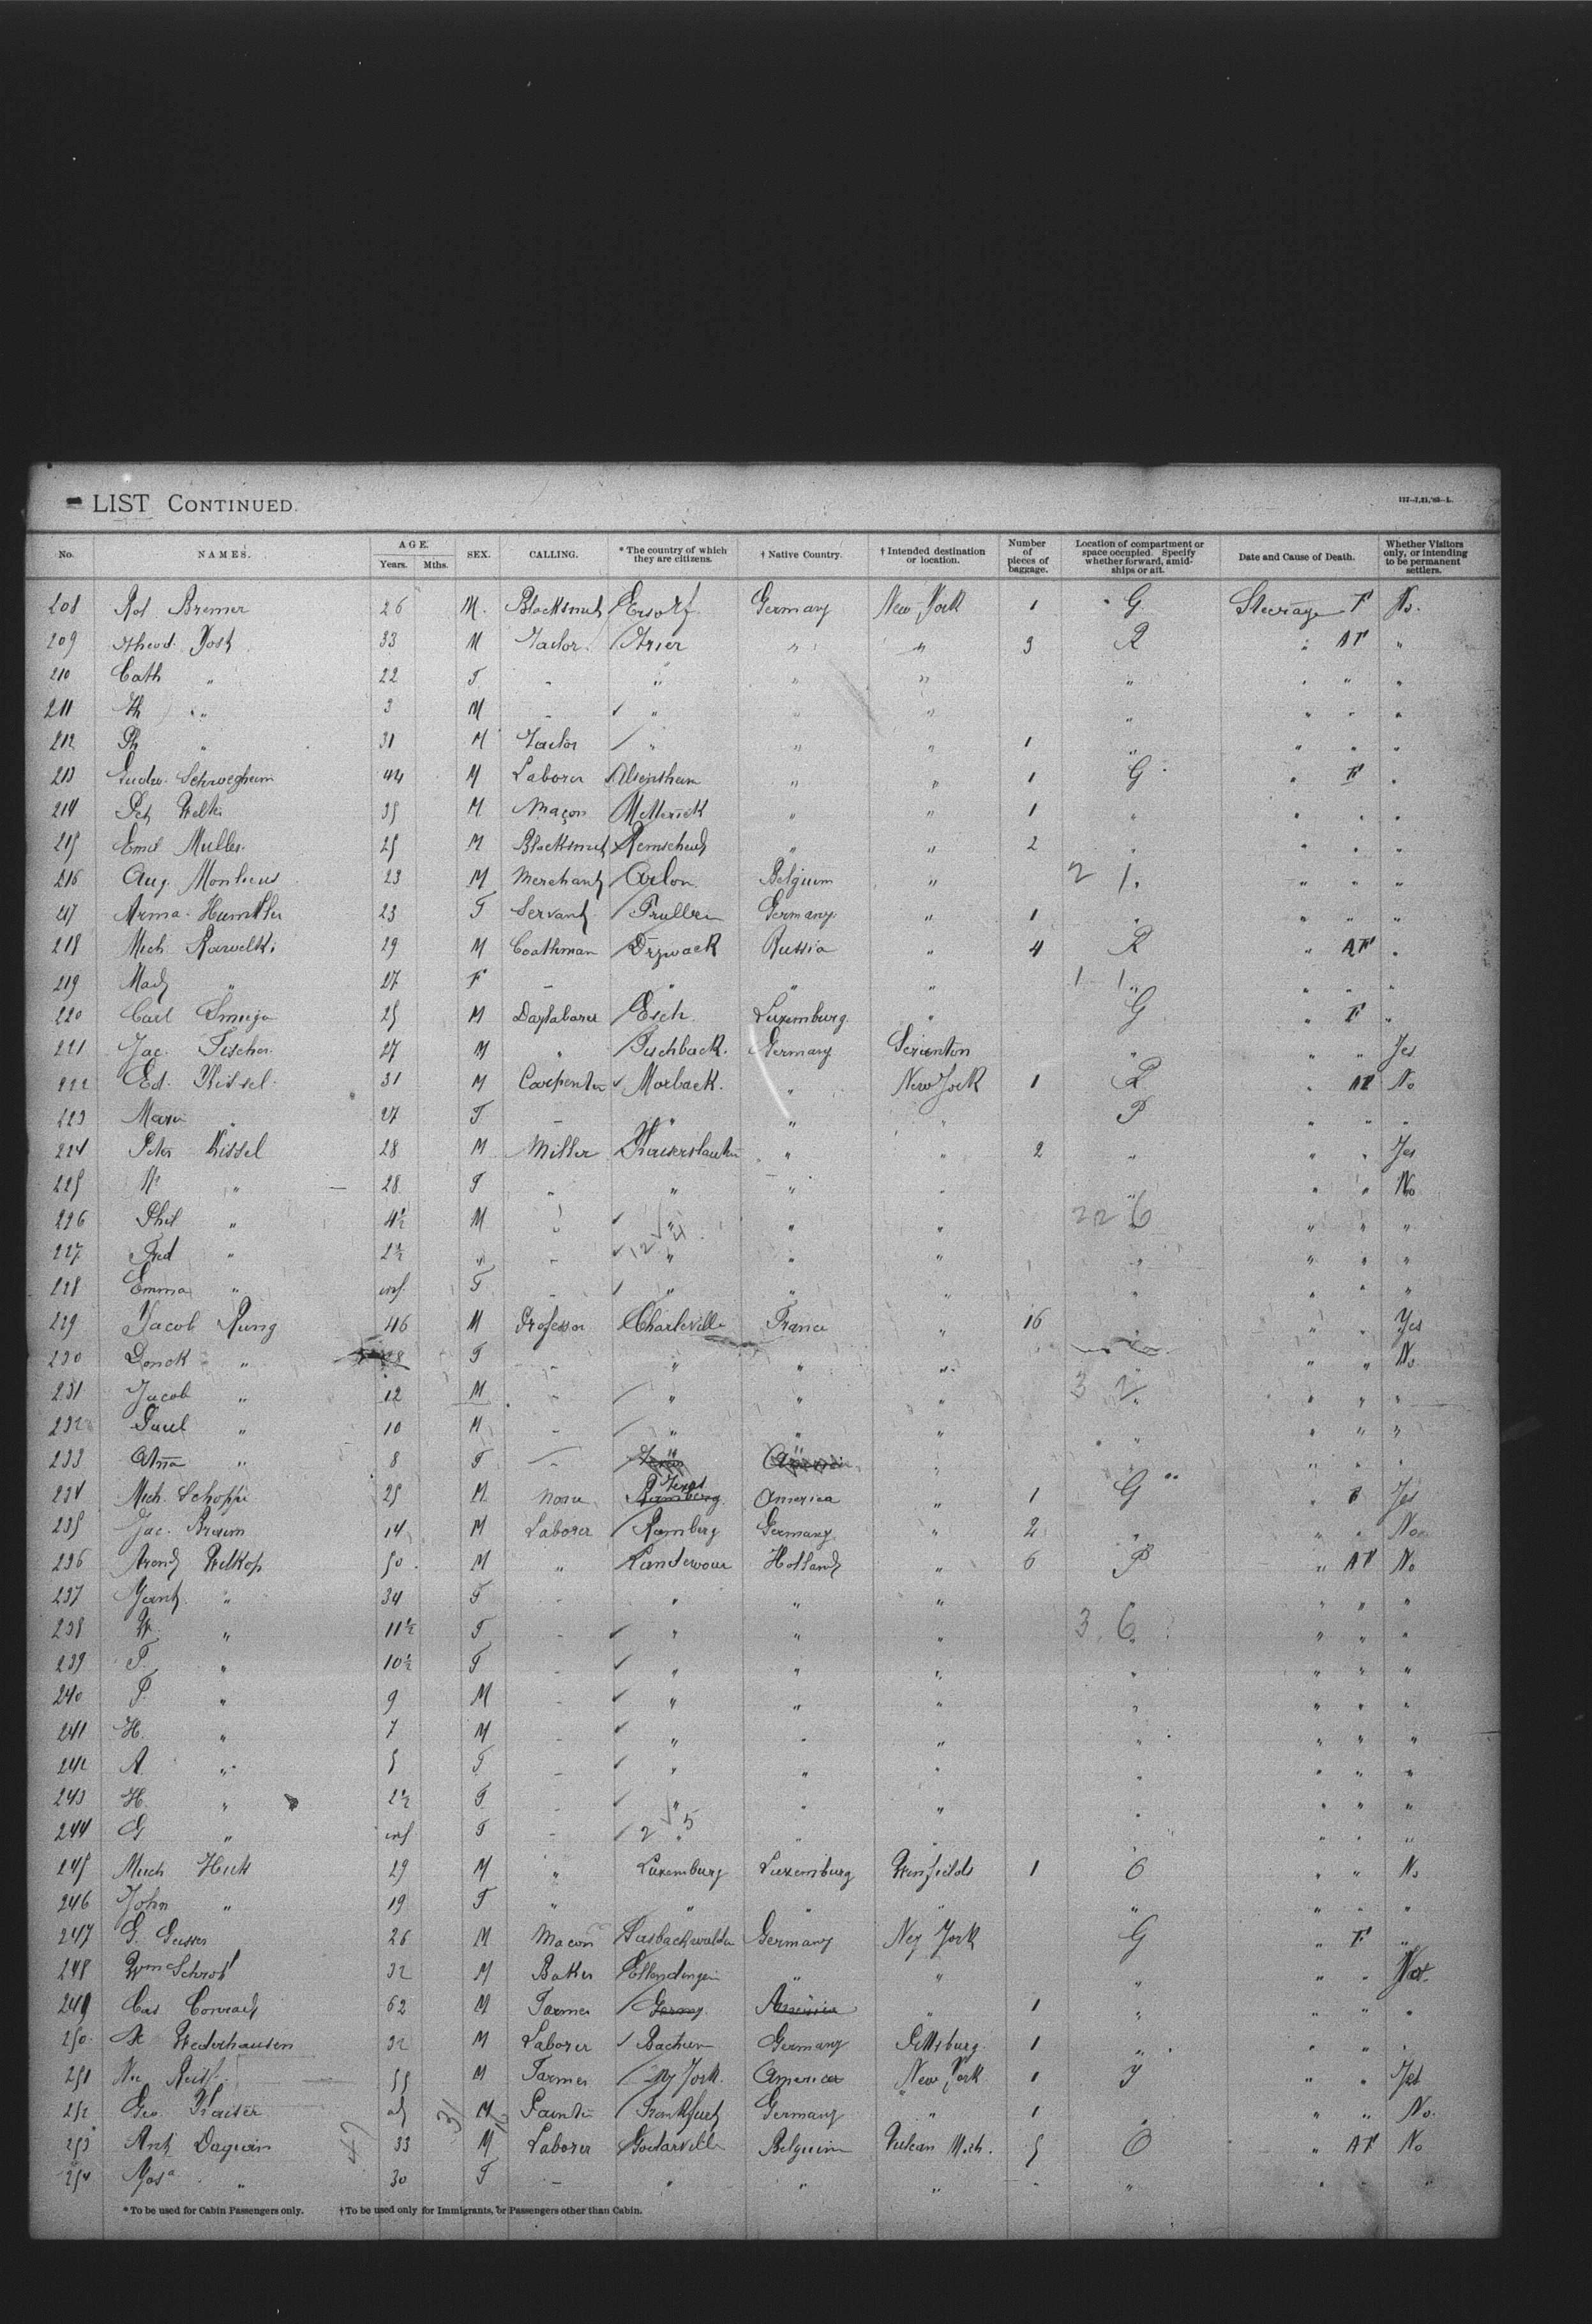 LIST CONTINUED.
No. NAMES. AGE. Years. Mths. SEX. CALLING. * The country of which they are citizens. † Native Country. † Intended destination or location. Number of pieces of baggage. Location of compartment or space occupied. Specify whether forward, amidships or aft. Date and Cause of Death. Whether Visitors only, or intending to be permanent settlers.
208 Rob Bremer 26 M. Blacksmith Germany New York 1 G Steerage F No.
209 Theod. Jost 33 M Tailor Trier " " 3 R " AF "
210 Cath " 22 F - " " " " " " "
211 Th " 3 M - " " " " " " "
212 Ph " 31 M Tailor " " " 1 " " " "
213 Schwegheim 44 M Laborer Alsensheim " " 1 G " F "
214 Pet Welk 35 M Maçon Metterick " " 1 " " " "
215 Emil Muller 25 M Blacksmith Remscheid " " 2 " " " "
216 Aug. 23 M Merchant Arlon Belgium " 2 1. " " "
217 23 F Servant Germany " 1 " " " "
218 Mich 29 M Coathman Russia " 4 R " AF "
219 " 27 F - " " " 1 1 " " " "
220 Carl 25 M Daylaborer Esch Luxemburg " G " F "
221 Jac. Fischer 27 M " Fischback. Germany Scranton " " " Yes
222 Ed. Kissel 31 M Carpenter Morback. " New York 1 R " AF No
223 " 27 F - " " " P " " "
224 Peter Kissel 28 M Miller Kaiserslautern " " 2 " " " Yes
225 " 28 F " " " " " " " No
226 Phil " 4½ M " " " " 22 6 " " "
227 Fred " 2½ " - " " " " " " "
228 Emma " inf. F - " " " " " " "
229 Jacob Rung 46 M Professor Charleville France " 16 " " " Yes
230 " 28 F - " " " " " No
231 Jacob " 12 M - " " " 3 2 " " "
232 Paul " 10 M - " " " " " " "
233 Anna " 8 F - " " " " "
234 Mich. Schoppi 25 M None Texas America " 1 G " F Yes
235 Jac. Braun 14 M Laborer Ramberg Germany " 2 " " " No
236 Arend Welkop 50 M " Holland " 6 P " AF No
237 " 34 F - " " " " " "
238 W " 11½ F - " " " 3 6 " " "
239 F. " 10½ F - " " " " " " "
240 P. " 9 M - " " " " " " "
241 H. " 7 M - " " " " " " "
242 A. " 5 F - " " " " " " "
243 H " 2½ F - " " " " " " "
244 G " inf F - 2 5 " " " " " "
245 29 M " Luxemburg Luxemburg Winfields 1 O " " No
246 John " 19 F " " " " " " " "
247 G. 26 M Macon Sasbachwalden Germany Ney York G " F "
248 Wm Schrob 32 M Baker Ellendingen " " " " "
249 Conrad 62 M Farmer Germy America " 1 " " " "
250 Wederhausen 32 M Laborer Germany Pittsburg 1 " " "
251 55 M Farmer Ny York. America New York 1 " " Yes
252 Geo. Kaiser M Painter Frankfurt Germany " 1 " " " No.
253 Ant Daguin 33 M Laborer Godarville Belguim Vulcan Mich. 5 O " AF No
254 " 30 F - " " " - " " "
* To be used for Cabin Passengers only. † To be used only for Immigrants, or Passengers other than Cabin.